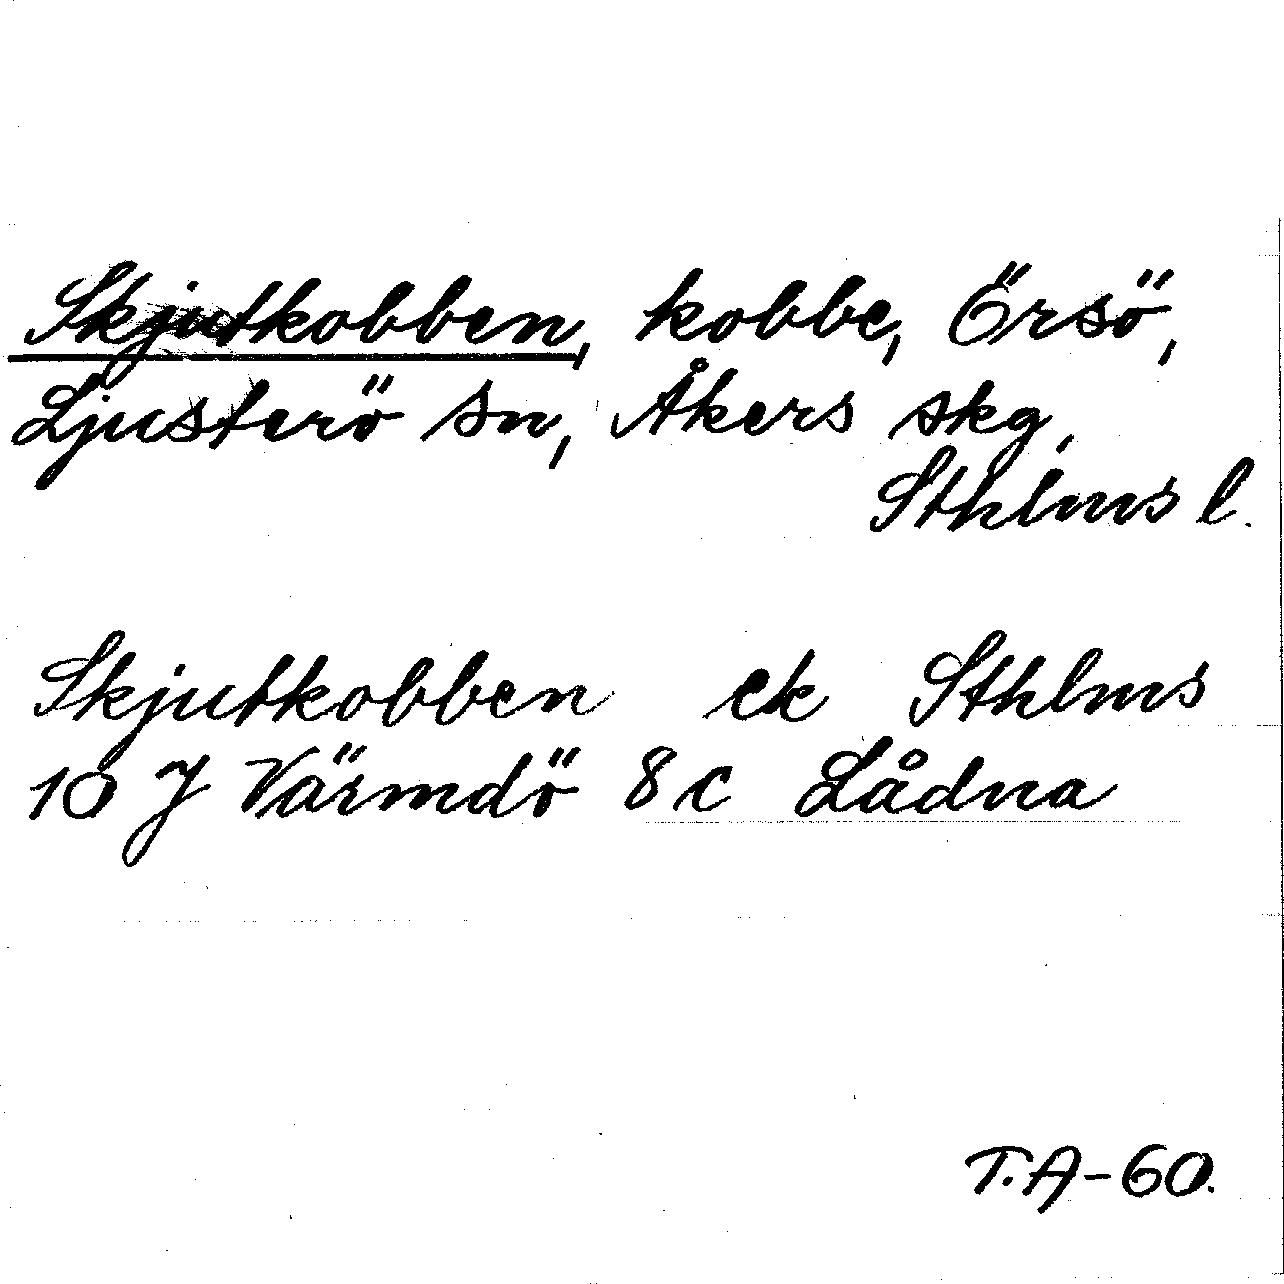 Skjutkobben, kobbe, Örsö,
Ljusterö sn, Åkers skg,
Sthlms l.
Skjutkobben ek Sthlms
10 J Värmdö 8 c Lådna
T.A-60.